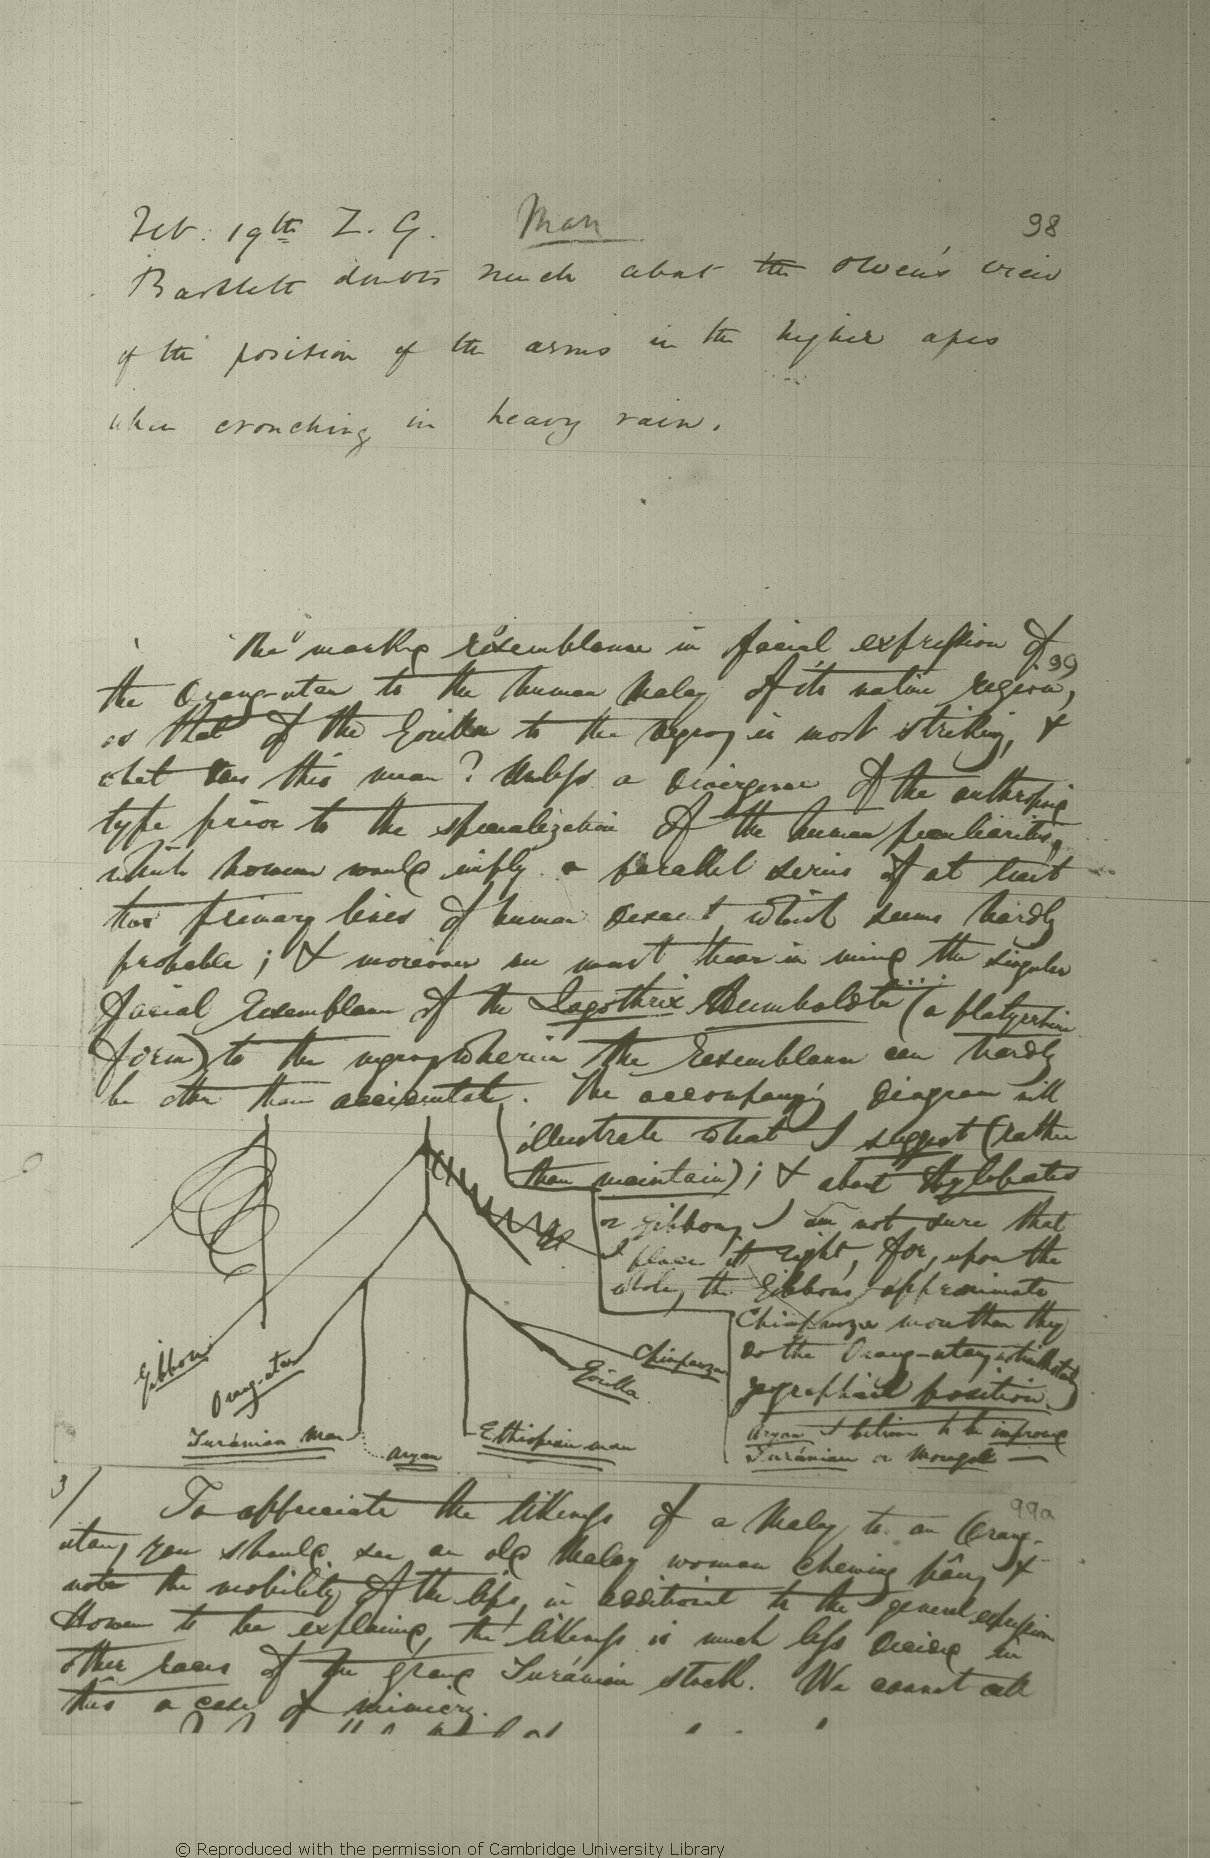 Feb. 19th Z. G. Man 98
Bartlett doubts much about the Owen's view
of the position of the arms in the higher apes
when crouching in heavy rain.
The marked resemblance in facial expression of
99
the Orang-utan to the human Malay of its native region,
as that of the Gorilla to the negro, is most striking, &
what does this mean? Unless a divergence of the anthropoid
type prior to the specialization of the human peculiarities,
which however would imply a parallel series of at least
two primary lines of human descent, which seems hardly
probable; & moreover we must bear in mind the singular
facial resemblance of the Lagothrix Humboldtii (a platyrrhine
form) to the negro, wherein the resemblance can hardly
be other than accidental. The accompanying diagram will
illustrate what I suggest (rather
than maintain); & about Hylobates
or gibbon, I am not sure that
I place it right, for, upon the
whole, the Gibbons approximate
Chimpanzee more than they
do the Orang-utan, notwithstanding
geographical position.
Aryan I believe to be improved
Turánian or Mongol —
Gibbons
Orang-utan
Turánian man
Aryan
Ethiopian man
Gorilla
Chimpanzee
3/
99a
To appreciate the likeness of a Malay to an Orang-
utan, you should see an old Malay woman chewing pân, &
note the mobility of the lips, in additional to the general expression
However to be explained, the likeness is much less decided in
other races of the grand Turánian stock. We cannot call
this a case of mimicry.
© Reproduced with the permission of Cambridge University Library